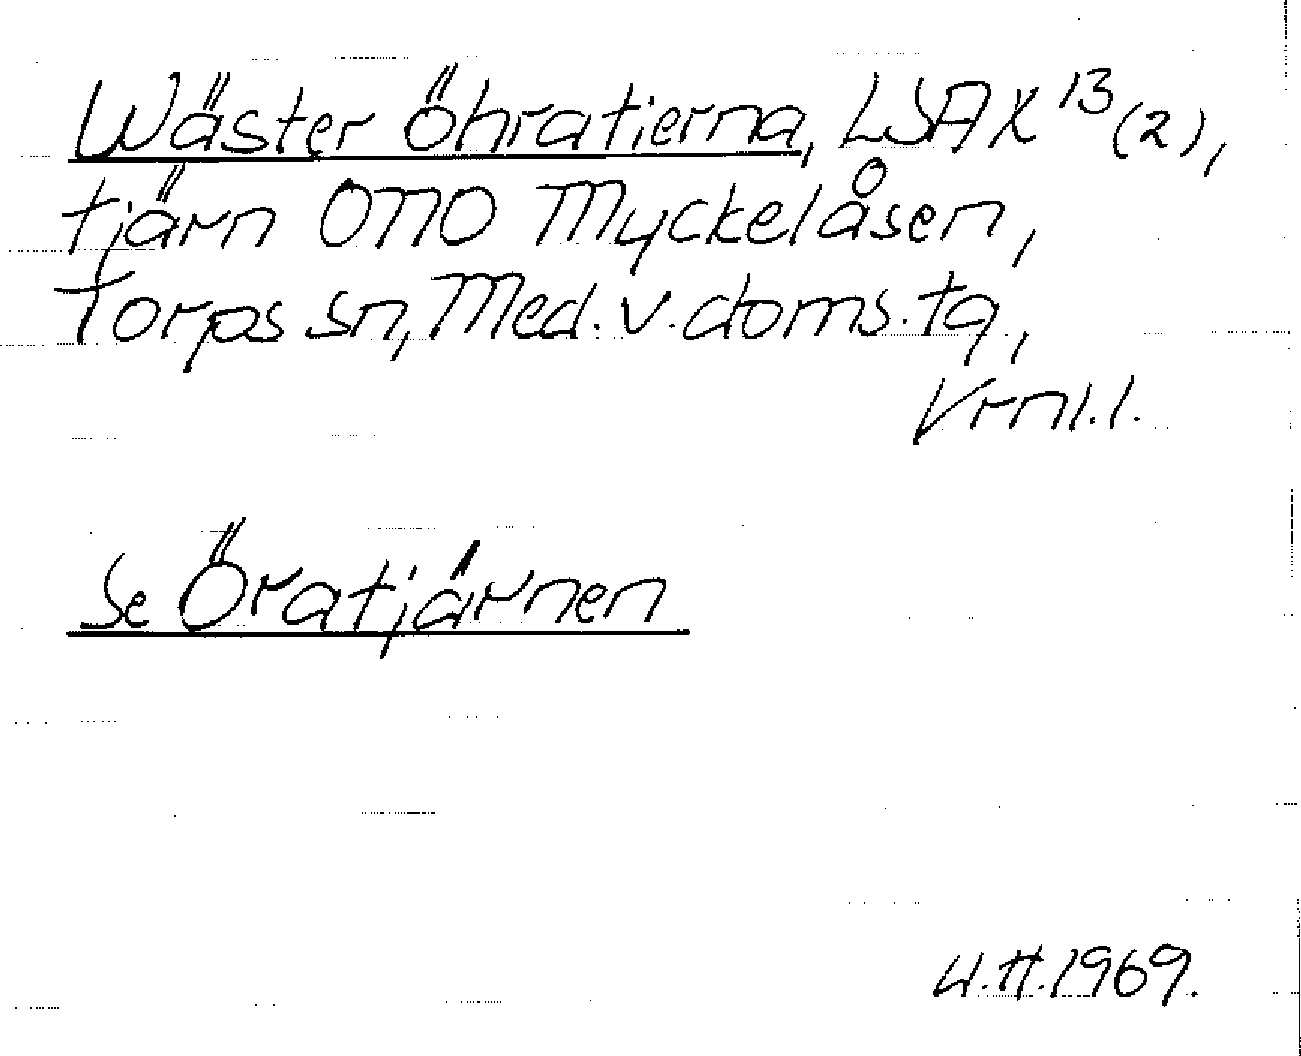 Wäster öhratierna, LSA X 13 (2),
tjärn ONO Myckelåsen,
Torps sn, Med. v. doms. tg,
Vrnl.l.
Se Öratjärnen
4.H.1969.